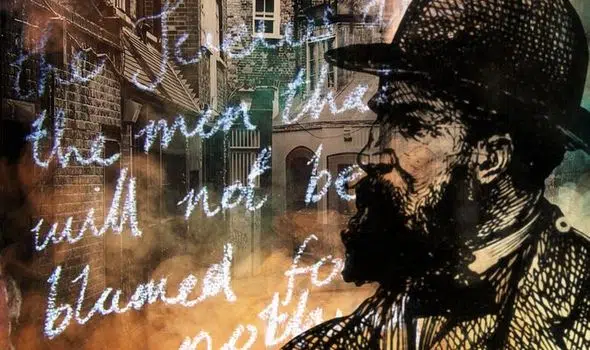 the Juwes
the men tha
will not be
blamed fo
noth